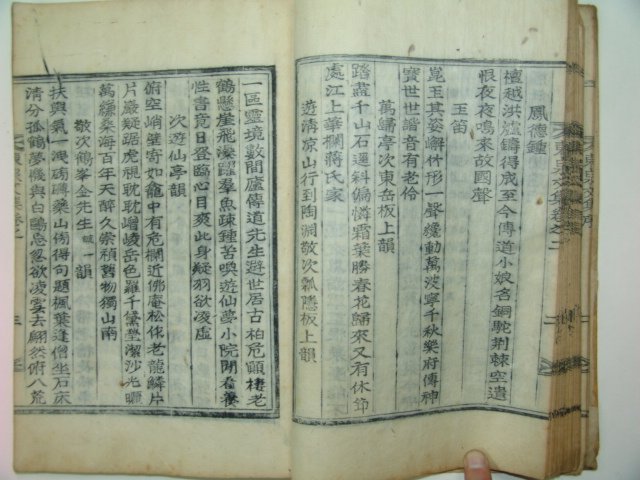 鳳德鍾
檀越洪爐鑄得成至今傳道小娘名銅駝荆棘空遺
恨夜夜鳴來故國聲
玉笛
崑玉其姿嶰竹形一聲纔動萬波寧千秋樂府傳神
寶世世諧音有老伶
萬歸亭敬次東岳板上韻
踏盡千山石逕斜偏憐霜葉勝春花歸來又有休
處江上華欄蔣氏家
遊清凉山行到陶淵敬次瓢隱板上韻
一區靈境數間廬傳道先生避世居古柏危顚棲老
鶴懸崖飛瀑躍羣魚疎鍾苦喚遊仙夢小院閒看養
性書竟日登臨心目爽此身疑羽欲凌虛
次遊仙亭韻
俯空峭壁寄如龕中有危欄近佛庵松作老龍鱗片
片巖疑踞虎視耽耽嶒崚岳色羅千黛瑩潔沙光曬
萬縑桑海百年天醉久崇禎舊物獨山南
敬次鶴峯金先生誠一韻
扶輿氣一洩磅礴藥山傍得句題楓葉逢僧坐石床
清分孤鶴夢機與白鷗忘忽欲凌雲去翩然俯八荒